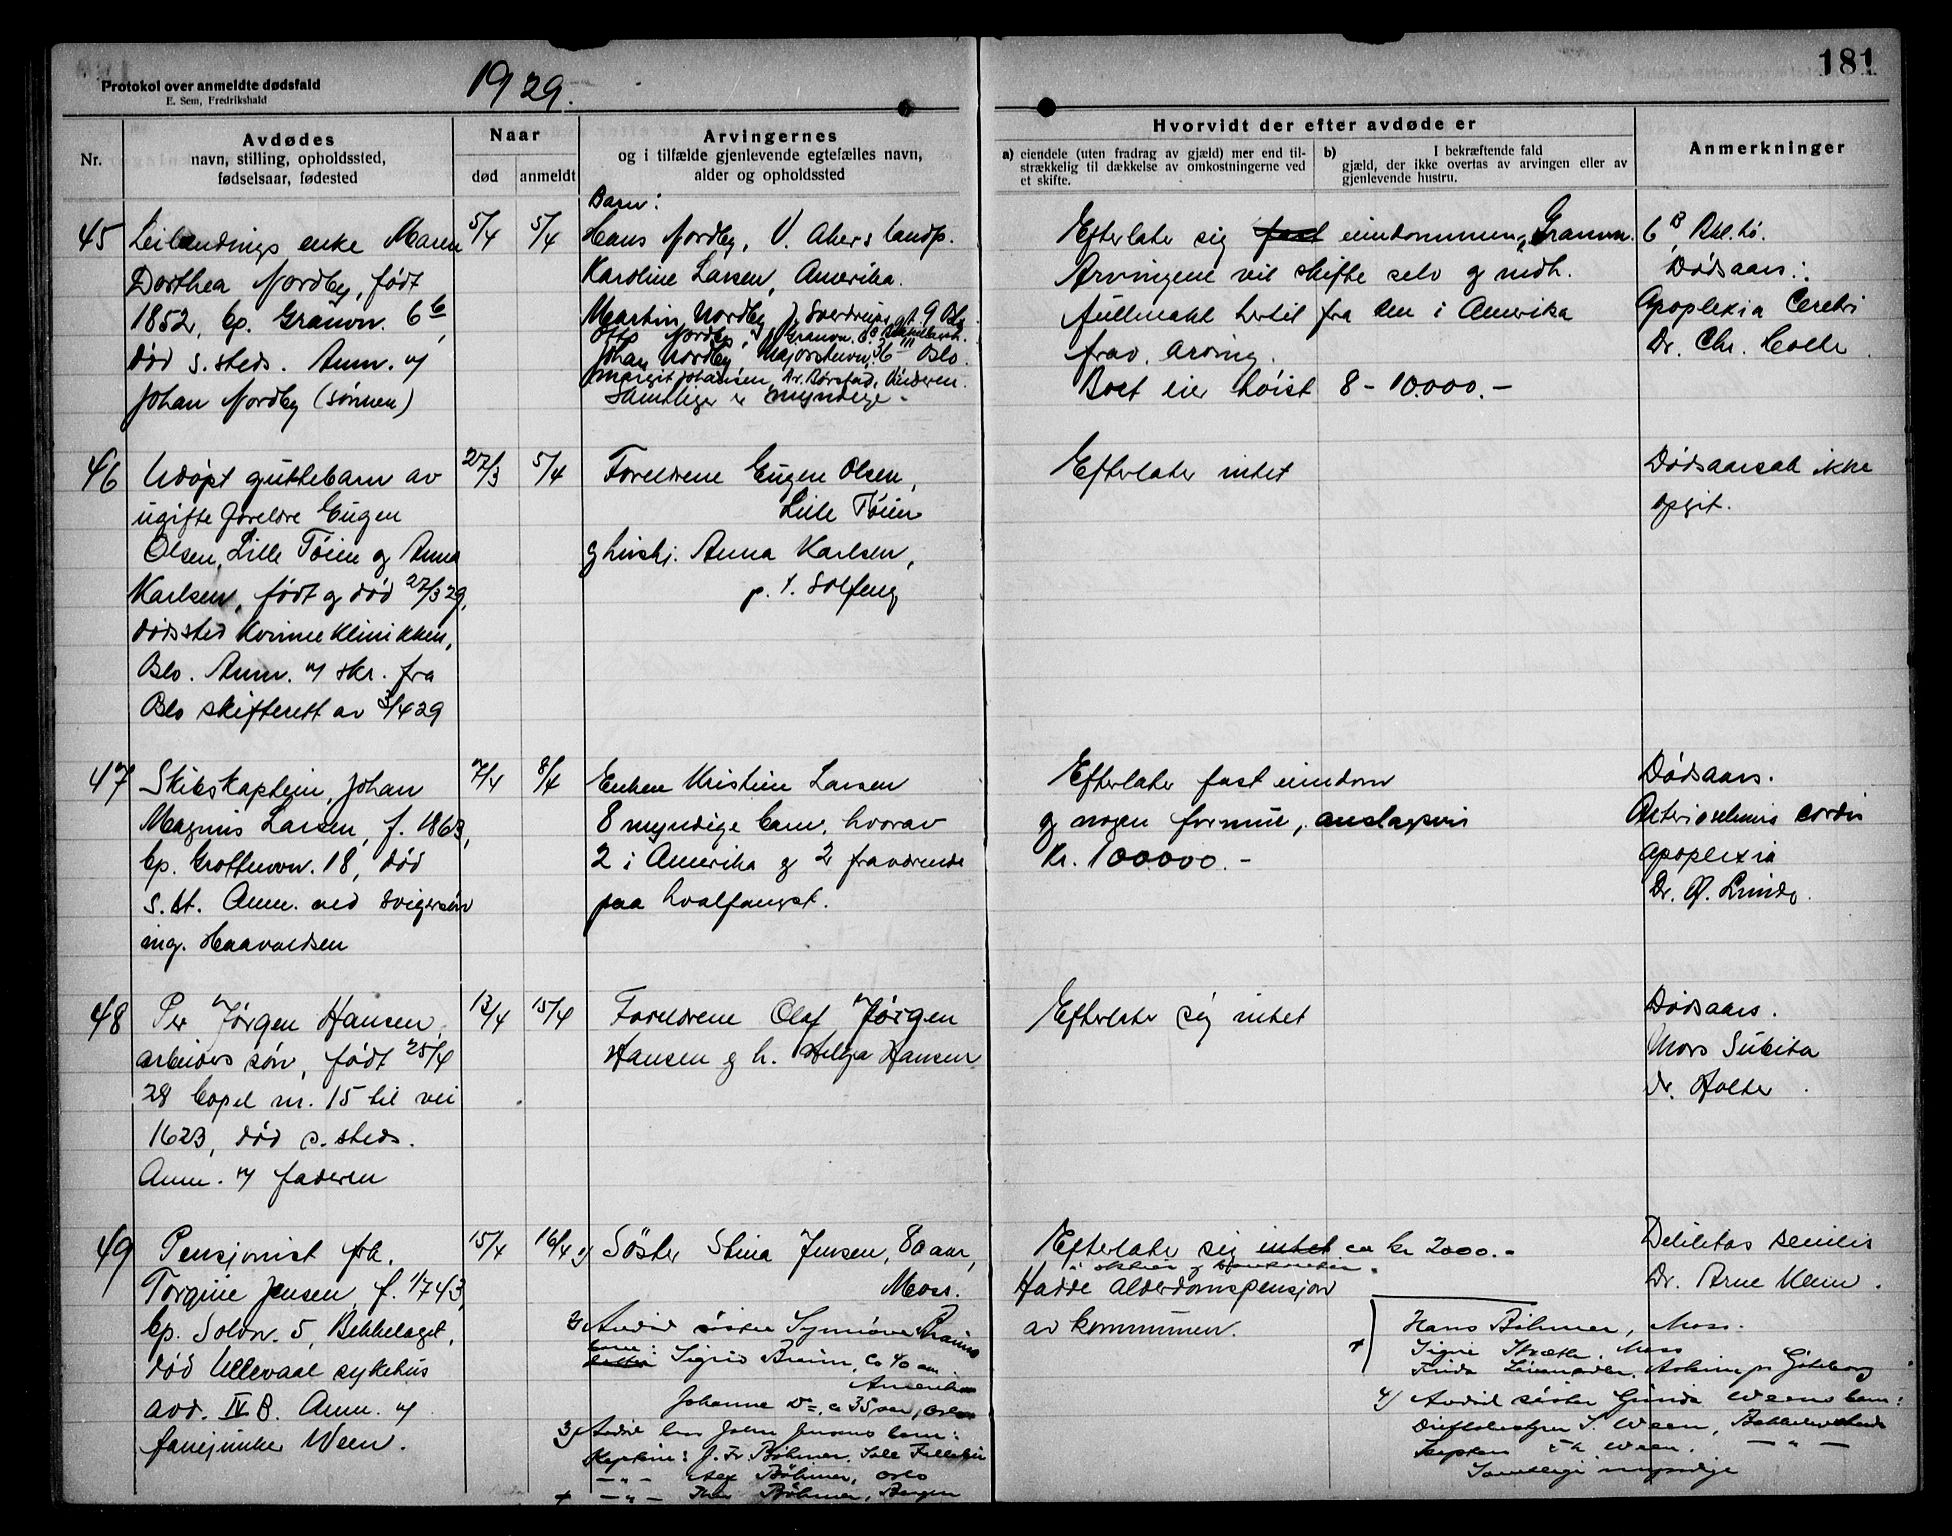 181
Protokol over anmeldte dødsfald
E. Sem, Fredrikshald
1929.
Nr.
Avdødes
navn, stilling, opholdssted,
fødselsaar, fødested
Naar
død
anmeldt
Arvingernes
og i tilfælde gjenlevende egtefælles navn,
alder og opholdssted
Hvorvidt der efter avdøde er
a) eiendele (uten fradrag av gjæld) mer end til-
strækkelig til dækkelse av omkostningerne ved
et skifte.
b) I bekræftende fald
gjæld, der ikke overtas av arvingen eller av
gjenlevende hustru.
Anmerkninger
45
Leilendings enke Maren
Dorthea Nordby, født
1852, bp. Granvn. 6 b,
død s. steds. Anm. v/
Johan Nordby (sønnen)
5/4
5/4
Barn:
Hans Nordby, V. Akers landp.
Karoline Larsen, Amerika.
Martin Nordby J. Sverdrups gt. 9 Oslo
Otto Nordby, Granvn. 6
Johan Nordby Majorstuvn. 36 III Oslo.
Margit Johansen, Vinderen.
Samtlige er myndige.
Efterlater sig fast eiendommen, Granvn. 6 B
Arvingene vil skifte selv og indh.
fullmakt hertil fra den i Amerika
frav. arving.
Boet eier høist 8 - 10.000.-
Dødsaars.:
Apoplexia Cerebri
Dr. Chr. Holtr
46
Udøpt guttebarn av
ugifte foreldre Eugen
Olsen, Lille Tøien og Anna
Karlsen, født og død 27/3 29,
dødssted Kvinneklinikken,
Oslo. Anm. v/ skr. fra
Oslo skifterett av 3/4 29
27/3
5/4
Foreldrene Eugen Olsen,
Lille Tøien
og hushj. Anna Karlsen,
p. t. Solfeng
Efterlater intet
Dødsaarsak ikke
opgit.
47
Skibskaptein, Johan
Magnus Larsen, f. 1863,
bp. Grottenvn. 18, død
s. st. Anm. ved svigersøn
ing. Haavaldsen
7/4
8/4
Enken Kristine Larsen
8 myndige barn, hvorav
2 i Amerika og 2 fraværende
paa hvalfangst.
Efterlater fast eiendom
og nogen formue, anslagsvis
Kr. 100.000.-
Dødsaars.
Arteriosclerosis cordis
Apoplexia
Dr. Ø. Lunde.
48
Per Jørgen Hansen,
arbeiders søn, født 25/4
28 bopel nr. 15 til vei
1623, død s. steds.
Anm. v/ faderen
13/4
15/4
Foreldrene Olaf Jørgen
Hansen og h. Helga Hansen
Efterlater sig intet
Dødsaars.
Mors Subita
Dr. Holter.
49
Pensjonist frk.
Torgine Jensen, f. 1/7 43,
bp. Solvn. 5, Bekkelaget,
død Ullevaal sykehus
avd. IV B. Anm. v/
fanejunker Ween.
15/4
16/4
1) Søster Stina Jensen, 80 aar,
Moss.
2) Avdød søster Synnøve Brauns
barn: Sigrid Braun, ca 40 aar
Amerika
Johanne Do=, ca 35 aar, Oslo
3) Avdød bror John Jensens barn:
Kaptein: J. Fr Bøhmer,
-"- Alf Bøhmer, Oslo
+ -"- Thor Bøhmer, Bergen
Efterlater sig intet ca kr 2000.-
i aktier og
Hadde Alderdomspensjon
av kommunen.
Debilitas senilis
Dr. Arne Klem.
+ Hans Bøhmer, Moss.
Signe, Moss
Frida, Göteborg
4) Avdød søster Gunda Weens barn:
S. Ween,
Ween. -"-
Samtlige myndige